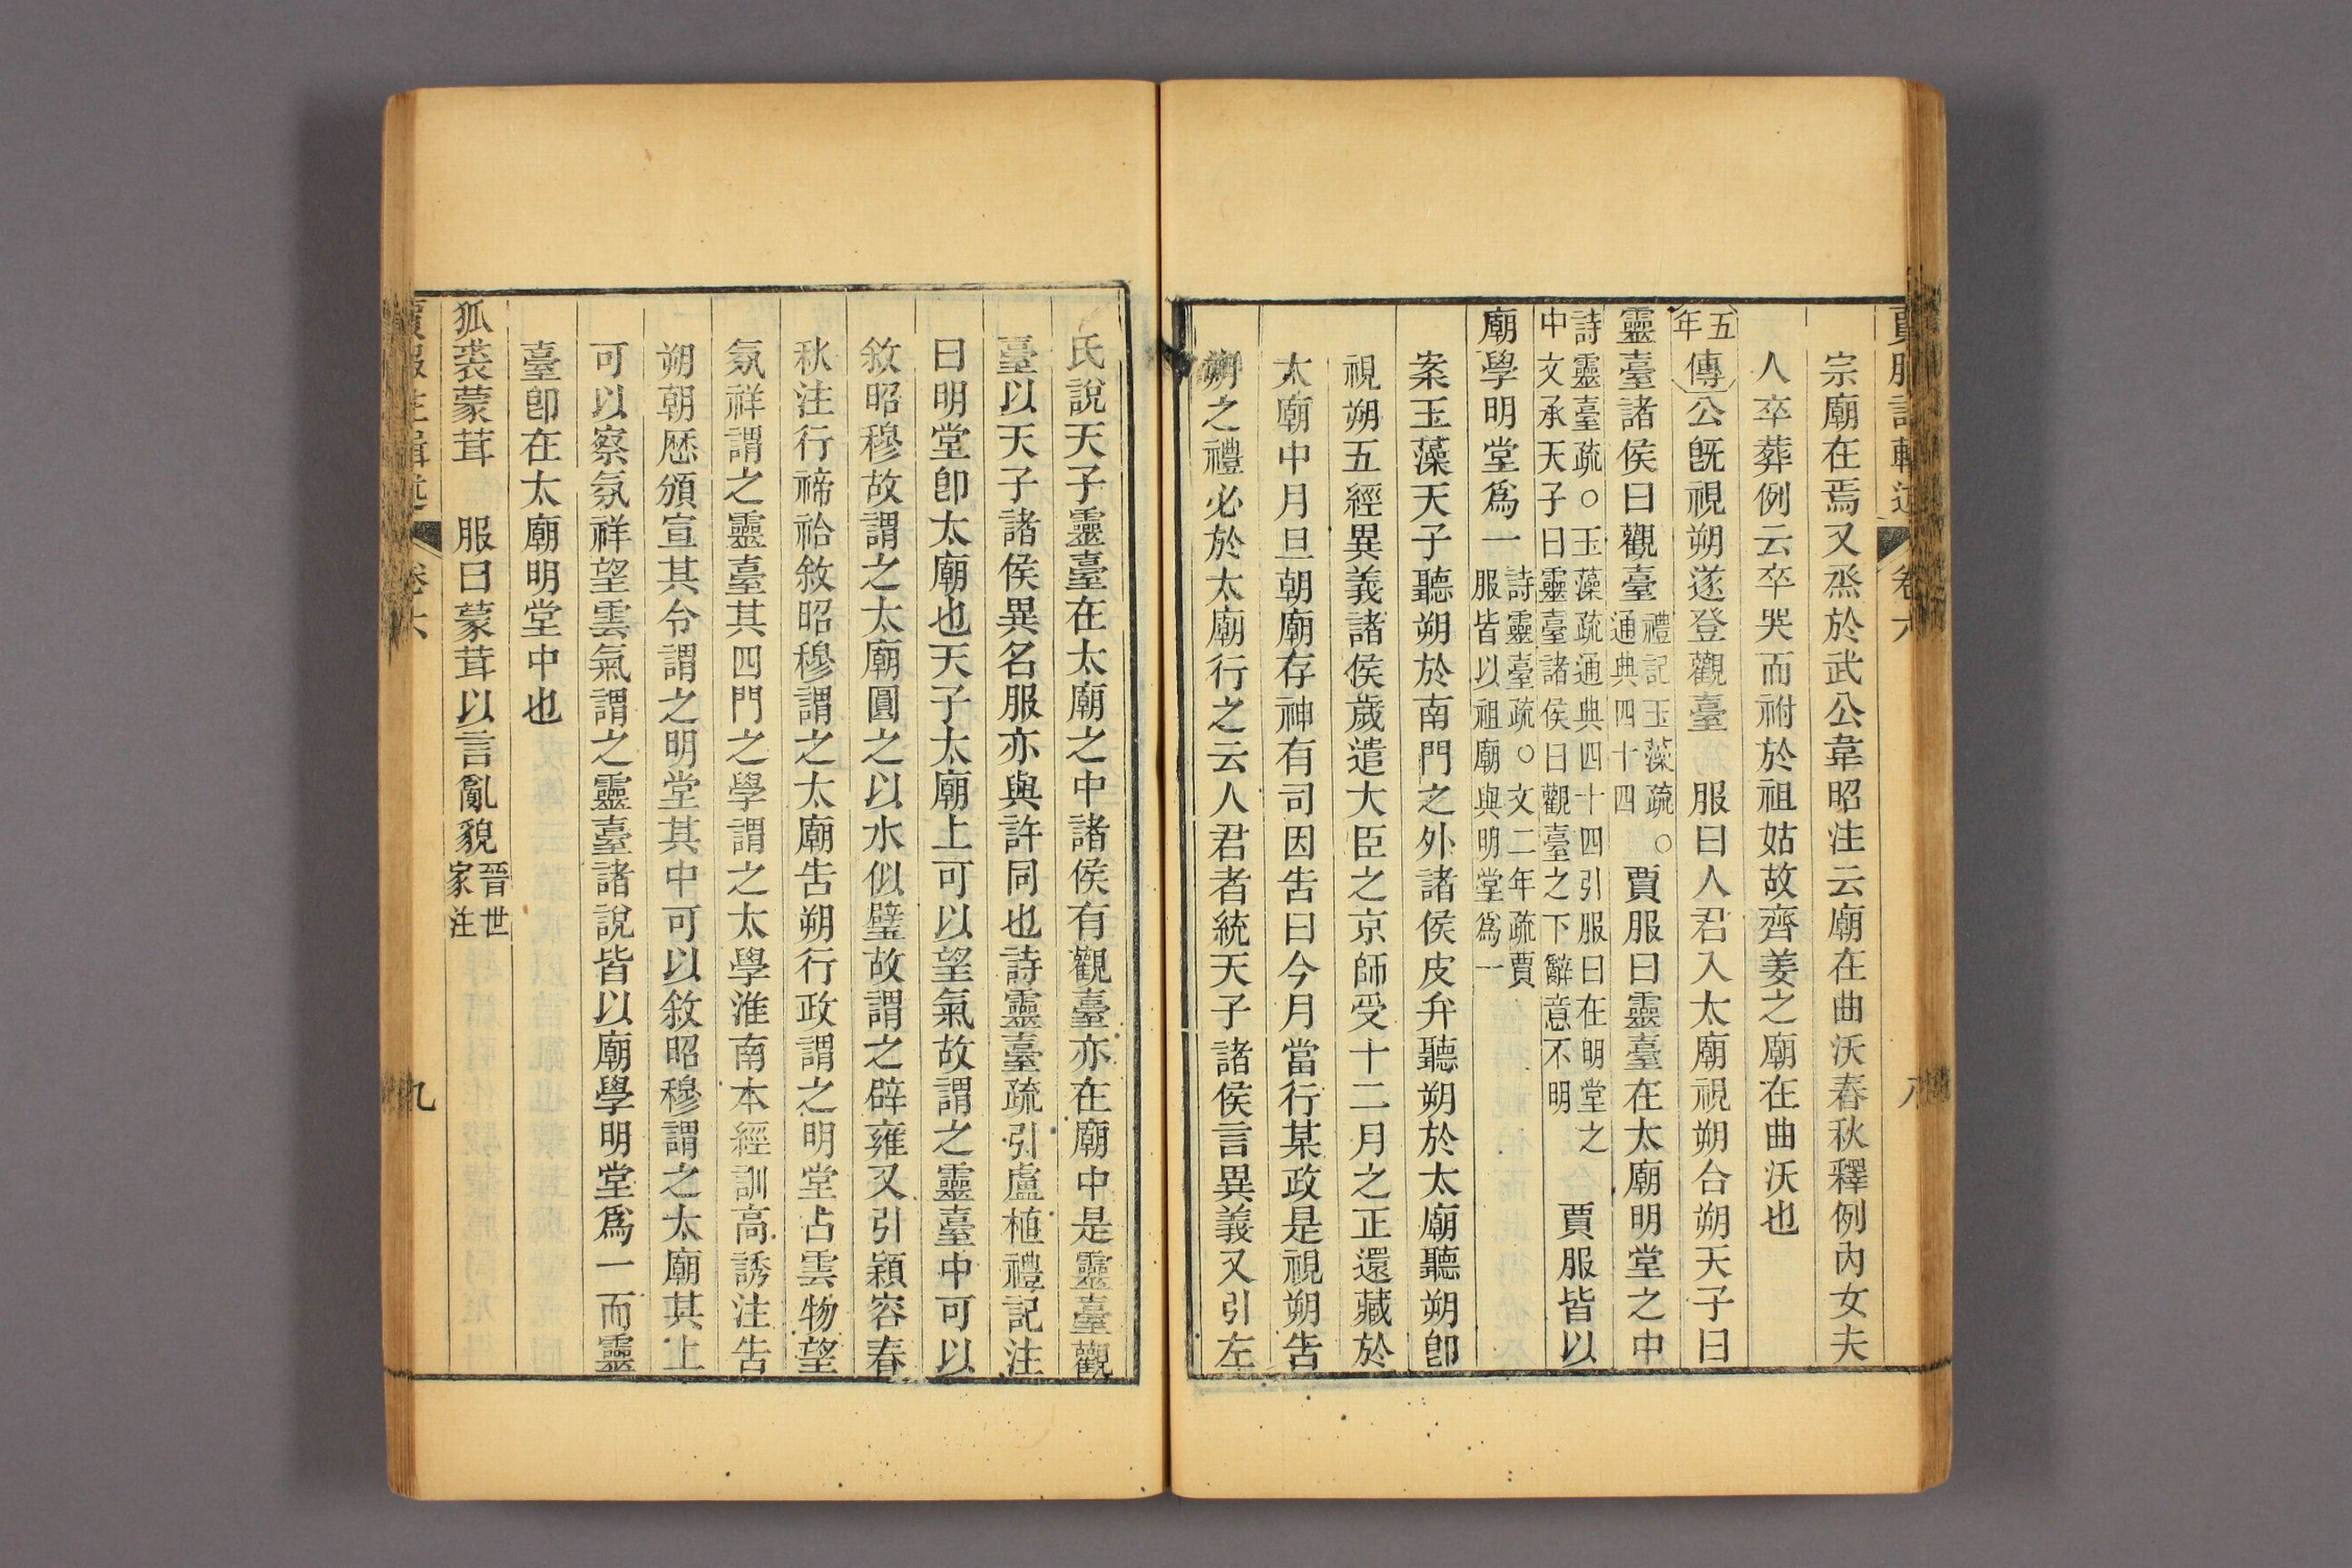 賈服注輯述 卷六 八
宗廟在焉又烝於武公韋昭注云廟在曲沃春秋釋例內女夫
人卒葬例云卒哭而祔於祖姑故齊姜之廟在曲沃也
五年傳公旣視朔遂登觀臺 服曰人君入太廟視朔合朔天子曰
靈臺諸侯曰觀臺禮記玉藻疏○通典四十四 賈服曰靈臺在太廟明堂之中
詩靈臺疏○玉藻疏通典四十四引服曰在明堂之中文承天子曰靈臺諸侯曰觀臺之下辭意不明 賈服皆以
廟學明堂爲一詩靈臺疏○文二年疏賈服皆以祖廟與明堂爲一
案玉藻天子聽朔於南門之外諸侯皮弁聽朔於太廟聽朔卽
視朔五經異義諸侯歲遣大臣之京師受十二月之正還藏於
太廟中月旦朝廟存神有司因告曰今月當行某政是視朔告
朔之禮必於太廟行之云人君者統天子諸侯言異義又引左
氏說天子靈臺在太廟之中諸侯有觀臺亦在廟中是靈臺觀
臺以天子諸侯異名服亦與許同也詩靈臺疏引盧植禮記注
曰明堂卽太廟也天子太廟上可以望氣故謂之靈臺中可以
敘昭穆故謂之太廟圓之以水似璧故謂之辟雍又引穎容春
秋注行禘祫敘昭穆謂之太廟告朔行政謂之明堂占雲物望
氛祥謂之靈臺其四門之學謂之太學淮南本經訓高誘注告
朔朝厯頒宣其令謂之明堂其中可以敘昭穆謂之太廟其上
可以察氛祥望雲氣謂之靈臺諸說皆以廟學明堂爲一而靈
臺卽在太廟明堂中也
狐裘蒙茸 服曰蒙茸以言亂貌晉世家注
賈服注輯述 卷六 九